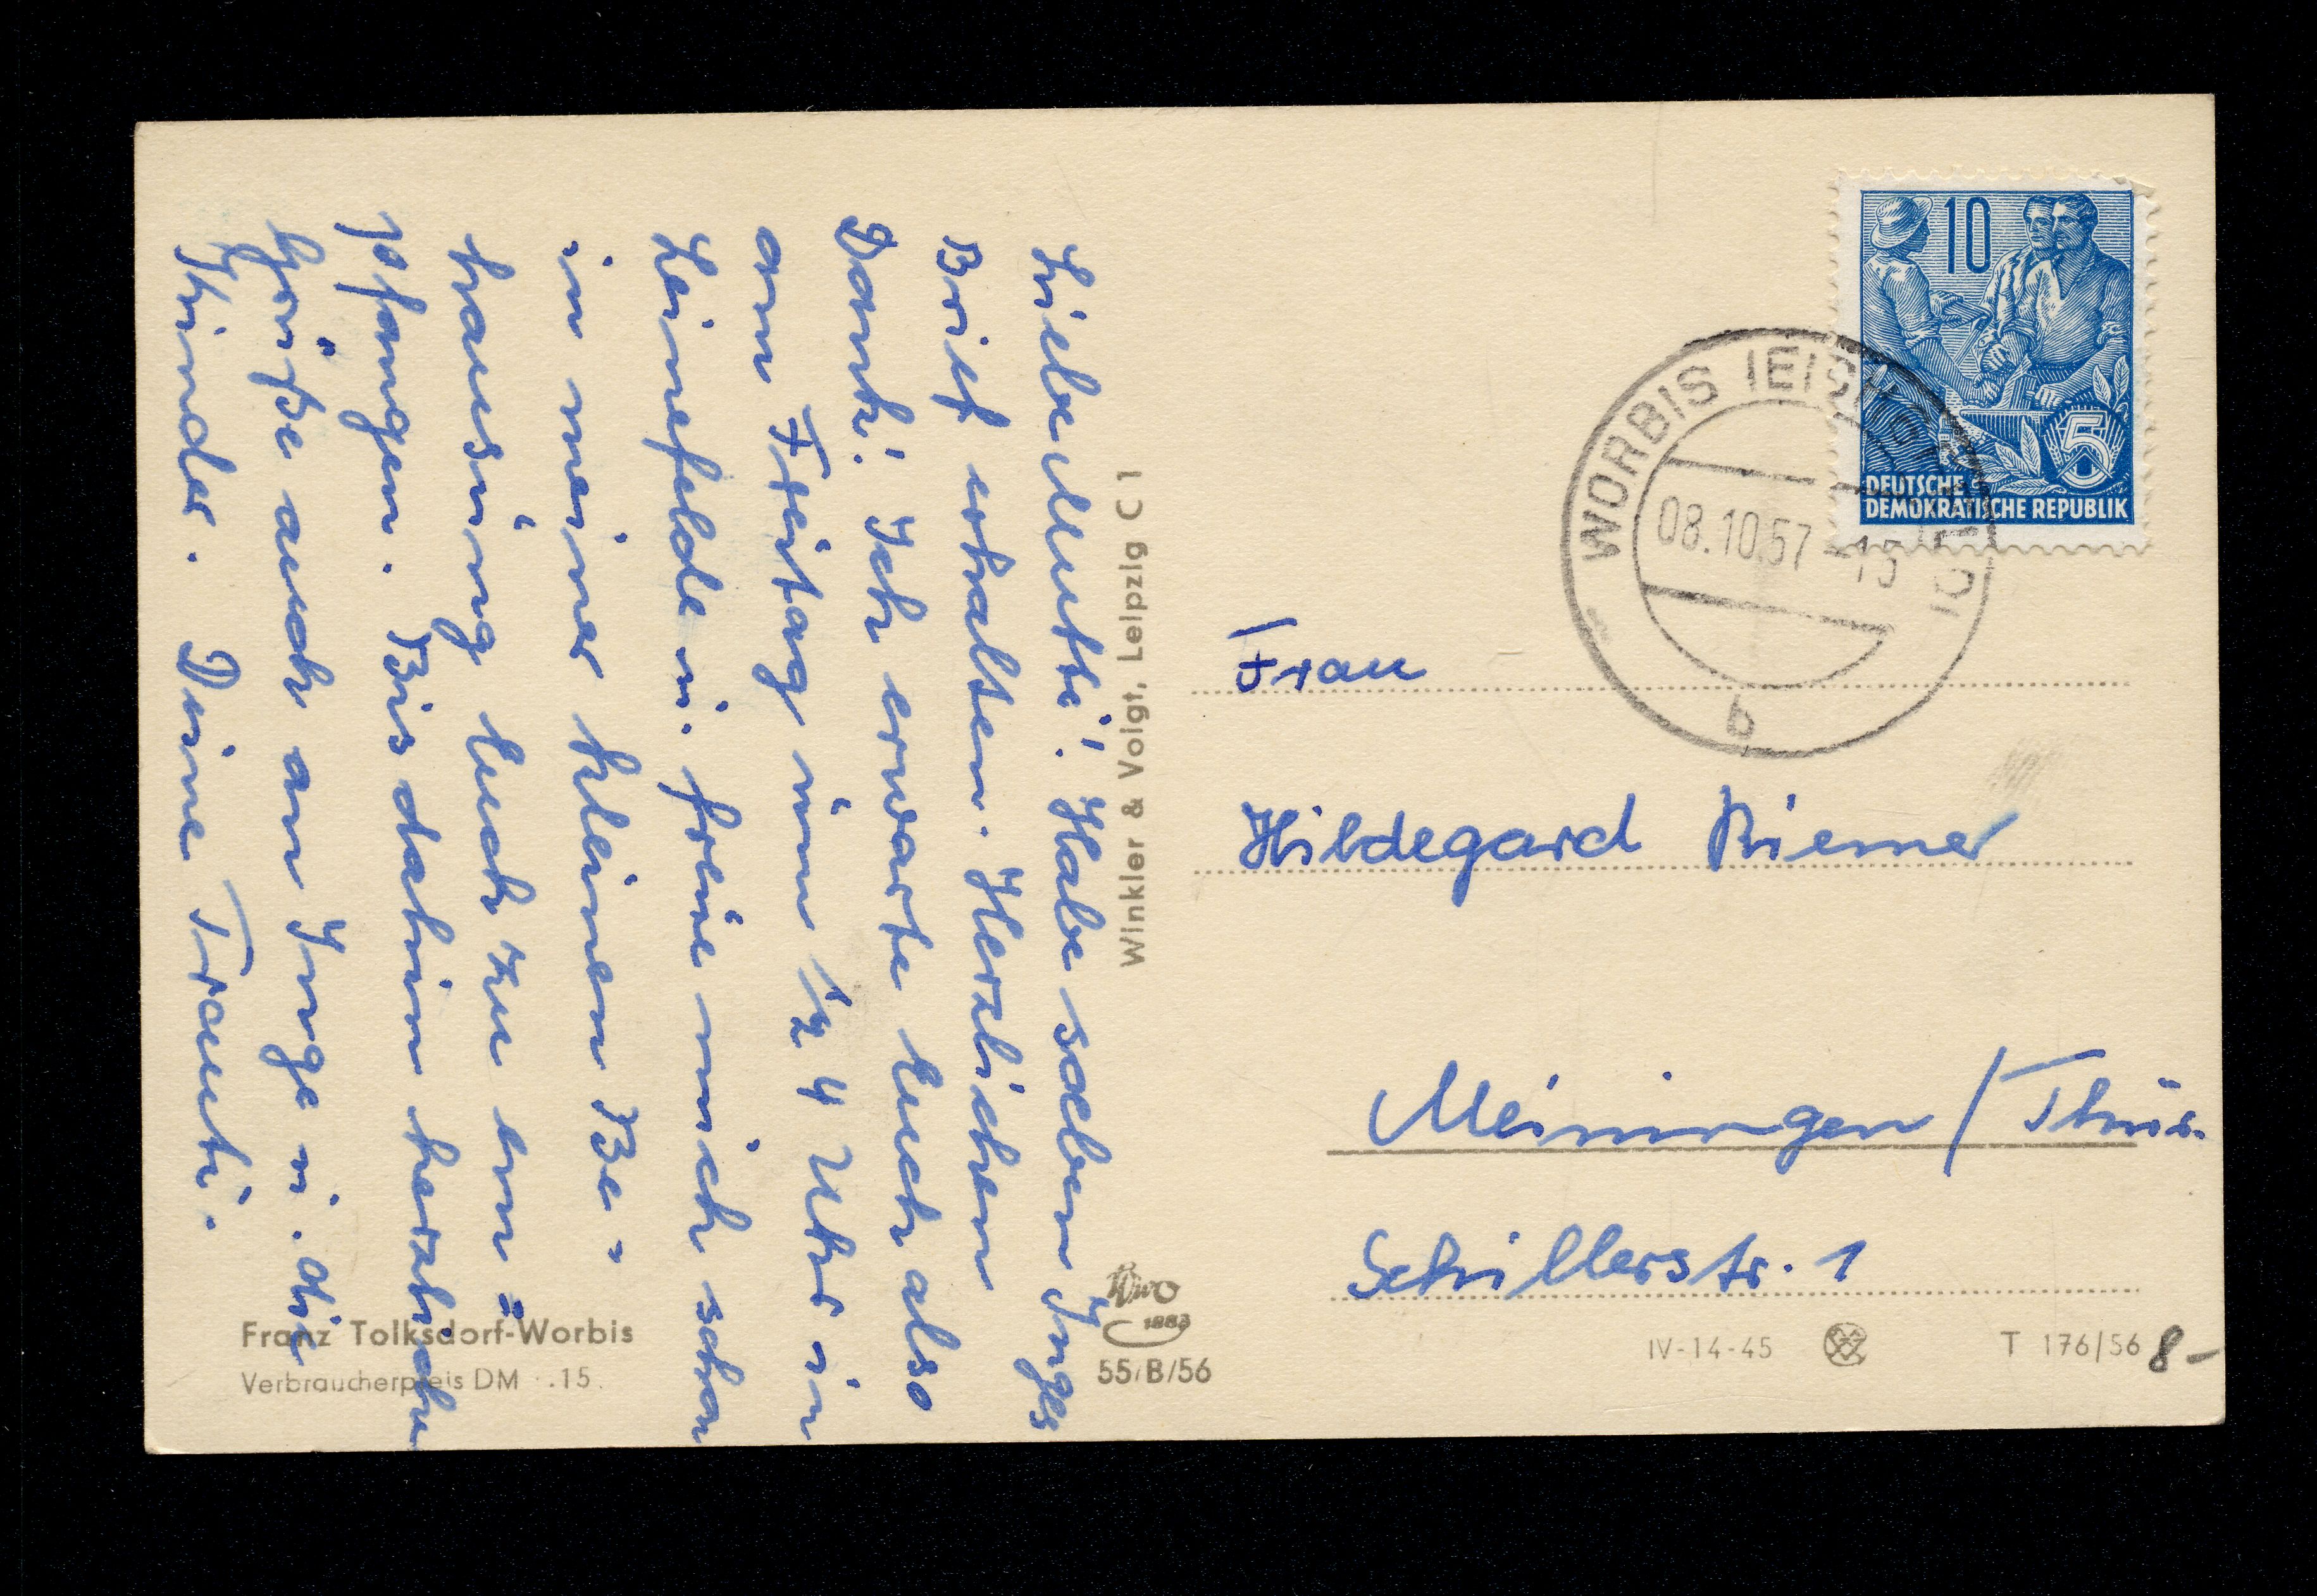 Liebe Mutti! Habe soeben Inges
Brief erhalten. Herzlichen
Dank! Ich erwarte Euch also
am Freitag um 1/2 4 Uhr in
Leinefelde u. freue mich schon
in meiner kleinen Be-
hausung Euch zu em-
pfangen. Bis dahin herzliche
Grüße auch an Inge u. die
Kinder. Deine Trauti.
Franz Tolksdorf-Worbis
Verbraucherpreis DM -.15
Winkler & Voigt, Leipzig C 1
1883
55/B/56
10
5
DEUTSCHE
DEMOKRATISCHE REPUBLIK
WORBIS (EICHSFELD)
08.10.57
b
Frau
Hildegard Riemer
Meiningen / Thür.
Schillerstr. 1
IV-14-45
T 176/56
8-